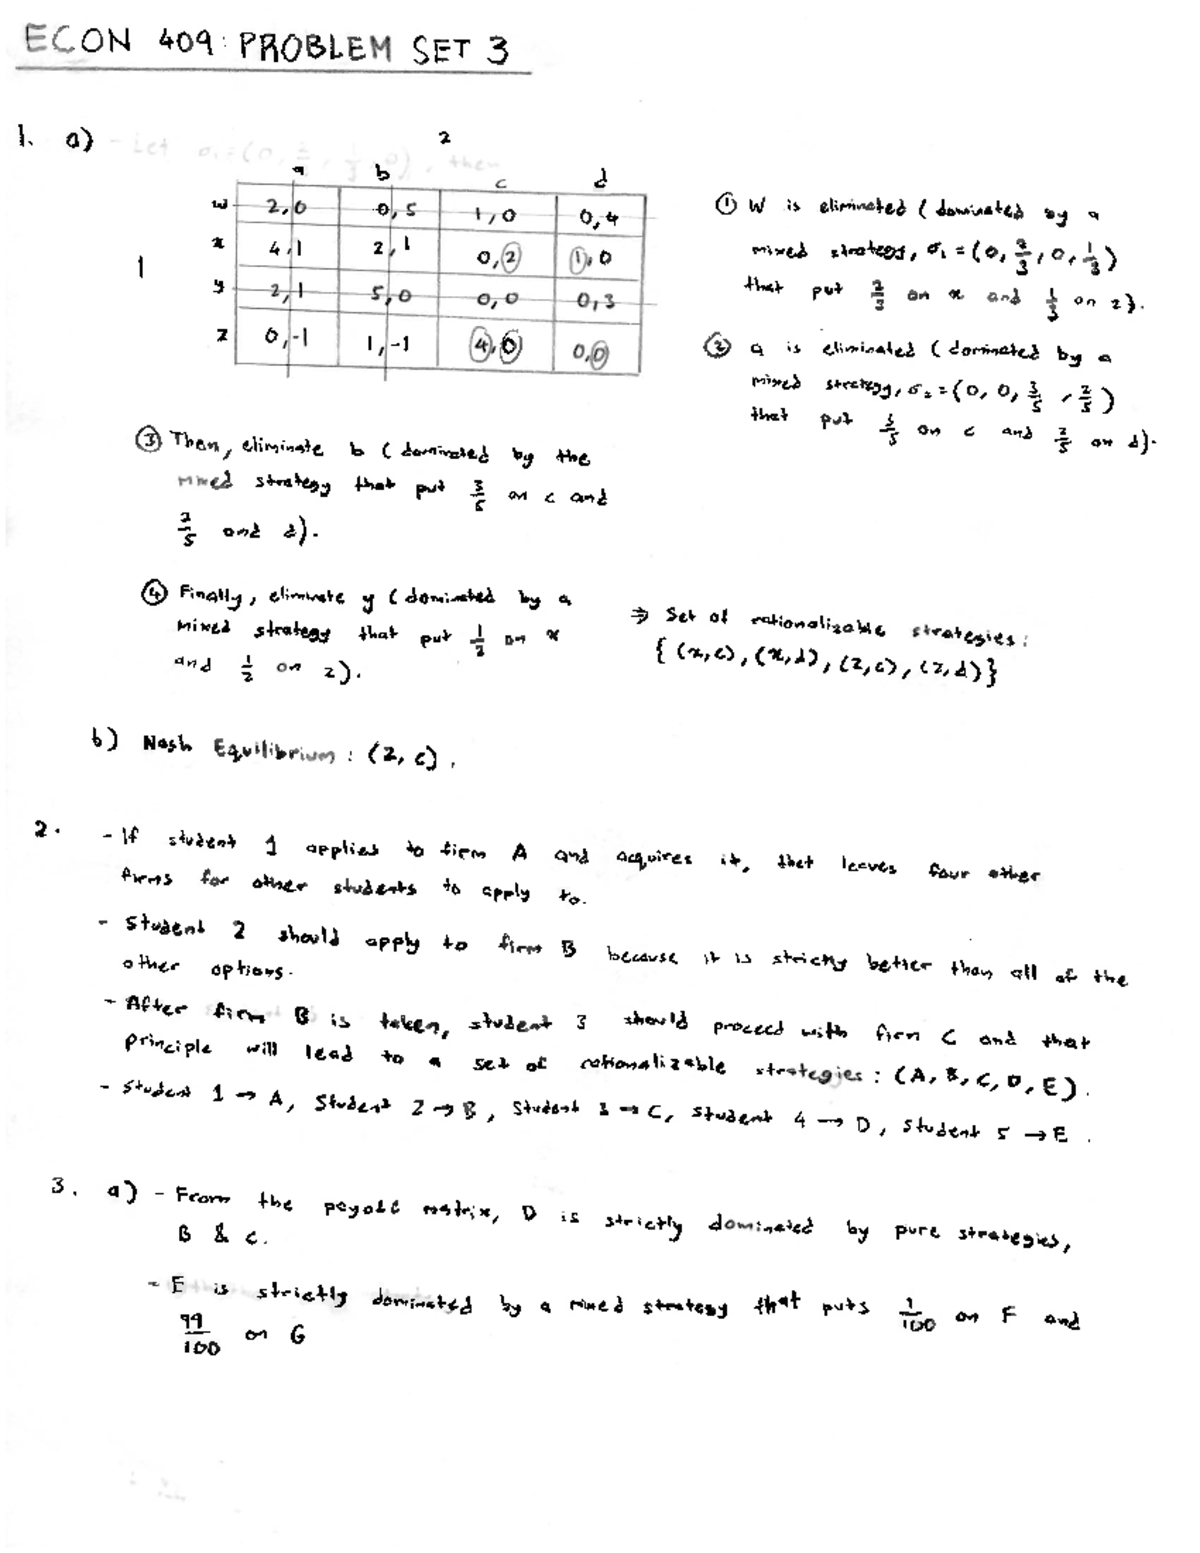 ECON 409: PROBLEM SET 3
1. a)
2
a b c d
w 2,0 0,5 1,0 0,4
x 4,1 2,1 0,2 1,0
1
y 2,1 5,0 0,0 0,3
z 0,-1 1,-1 4,0 0,0
① W is eliminated (dominated by a
mixed strategy, σ₁ = (0, 2/3, 0, 1/3)
that put 2/3 on x and 1/3 on z).
② a is eliminated (dominated by a
mixed strategy, σ₂ = (0, 0, 3/5, 2/5)
that put 3/5 on c and 2/5 on d).
③ Then, eliminate b (dominated by the
mixed strategy that put 3/5 on c and
2/5 ond d).
④ Finally, eliminate y (dominated by a
mixed strategy that put 1/2 on x
and 1/2 on z).
⇒ Set of rationalizable strategies:
{(x,c), (x,d), (z,c), (z,d)}
b) Nash Equilibrium: (z, c).
2. - If student 1 applied to firm A and acquires it, that leaves four other
firms for other students to apply to.
- Student 2 should apply to firm B because it is strictly better than all of the
other options.
- After firm B is taken, student 3 should proceed with firm C and that
principle will lead to a set of rationalizable strategies: (A, B, C, D, E).
- Student 1 → A, Student 2 → B, Student 3 → C, Student 4 → D, Student 5 → E.
3. a) - From the payoff matrix, D is strictly dominated by pure strategies,
B & C.
- E is strictly dominated by a mixed strategy that puts 1/100 on F and
99/100 on G